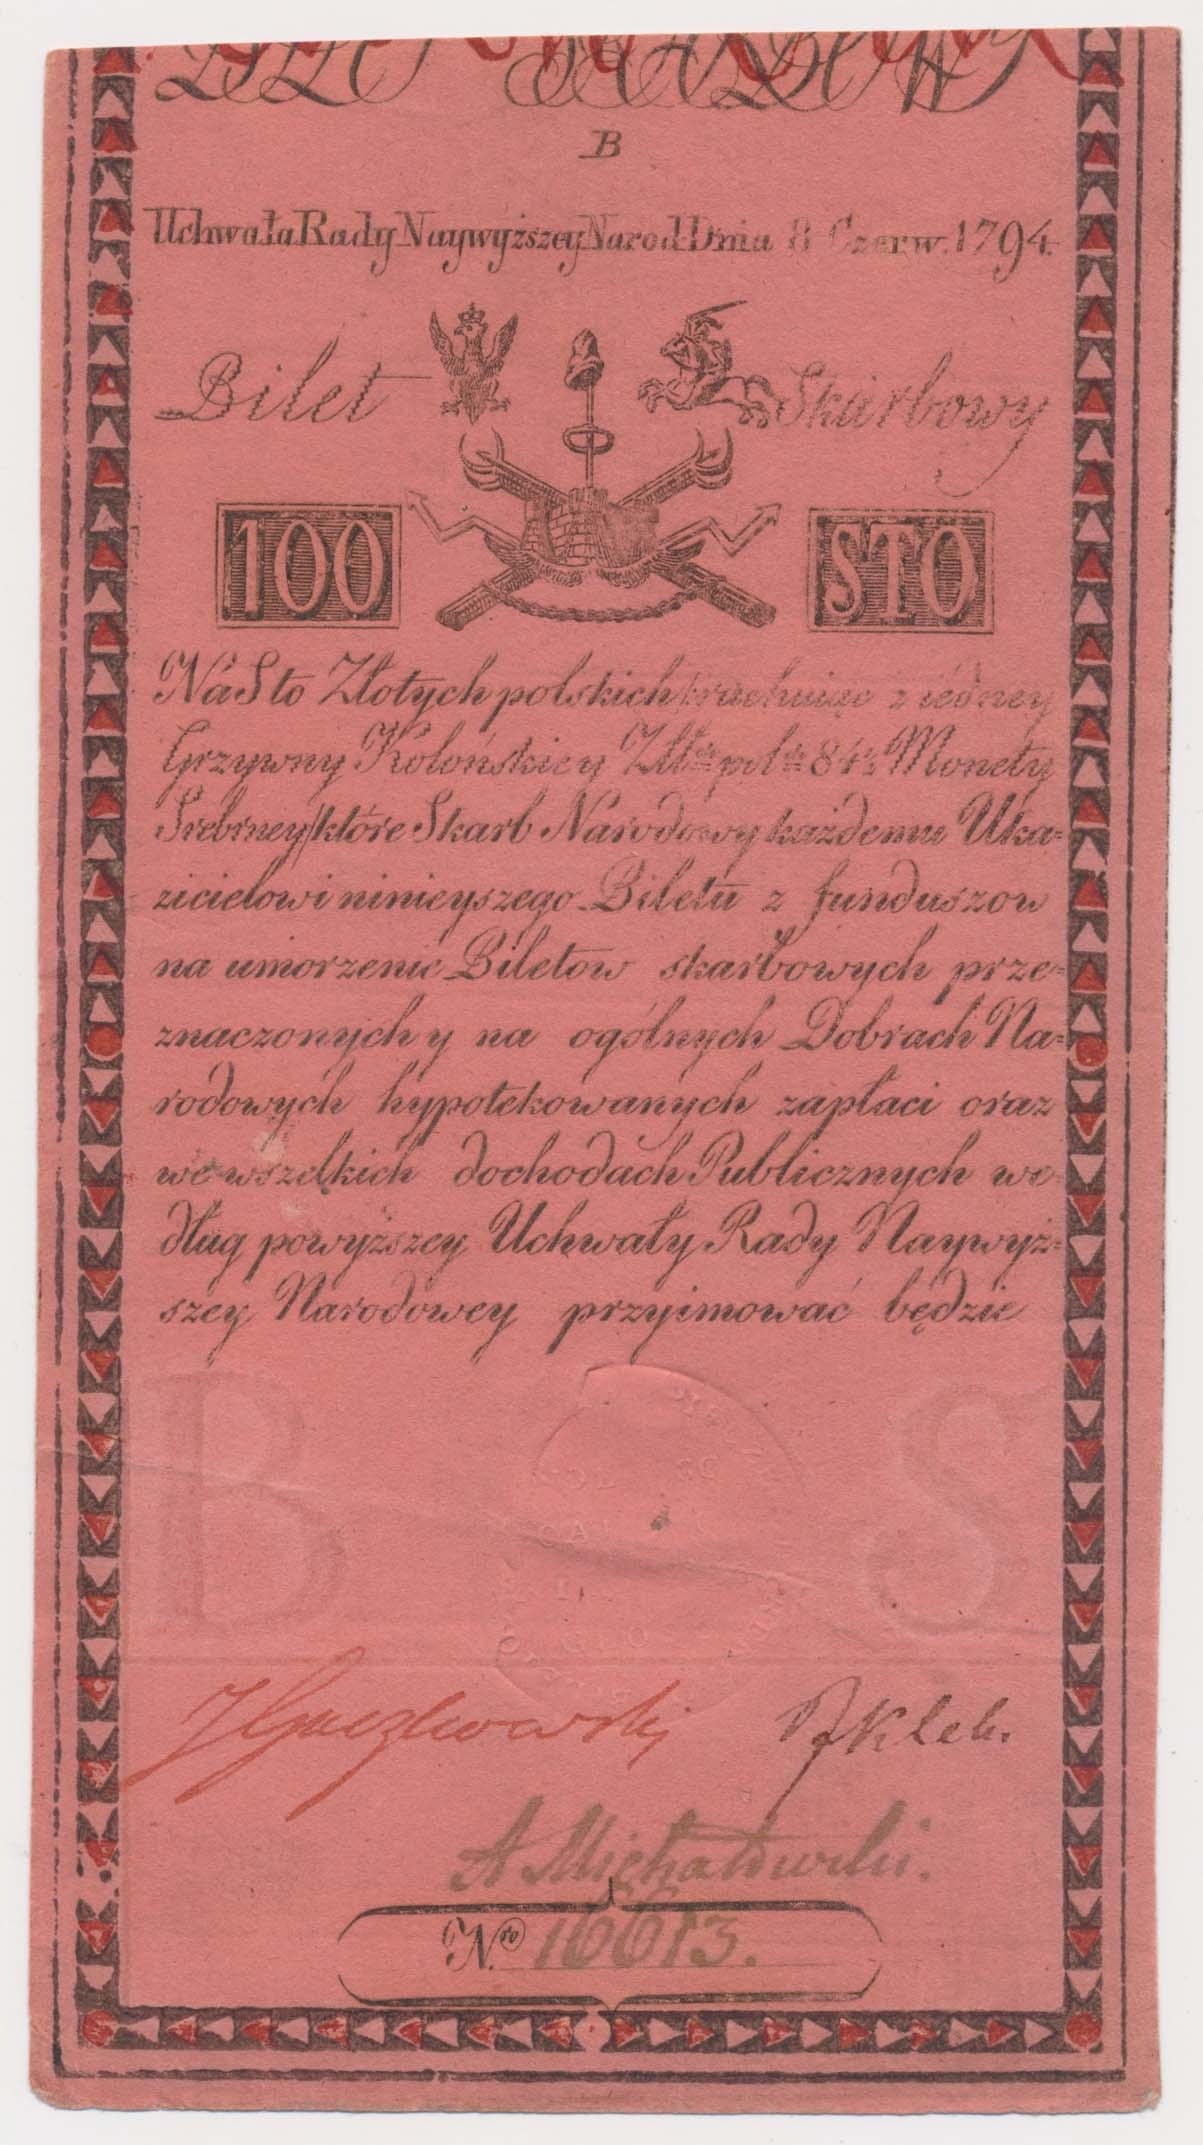 BILET SKARBOWY
B
Uchwała Rady Naywyższey Narod: Dnia 8 Czerw. 1794.
Bilet Skarbowy
100 STO
Na Sto Złotych polskich /:rachuiąc z iedney
Grzywny Kolońskiey Złt: pol: 84½ Monety
Srebrney/ które Skarb Narodowy każdemu Uka=
zicielowi ninieyszego Biletu z funduszow
na umorzenie Biletow skarbowych prze=
znaczonych y na ogólnych Dobrach Na=
rodowych hypotekowanych zapłaci oraz
we wszelkich dochodach Publicznych we=
dług powyższey Uchwały Rady Naywyż=
szey Narodowey przyimować będzie
B S
A Michałowski.
N.ro 16613.